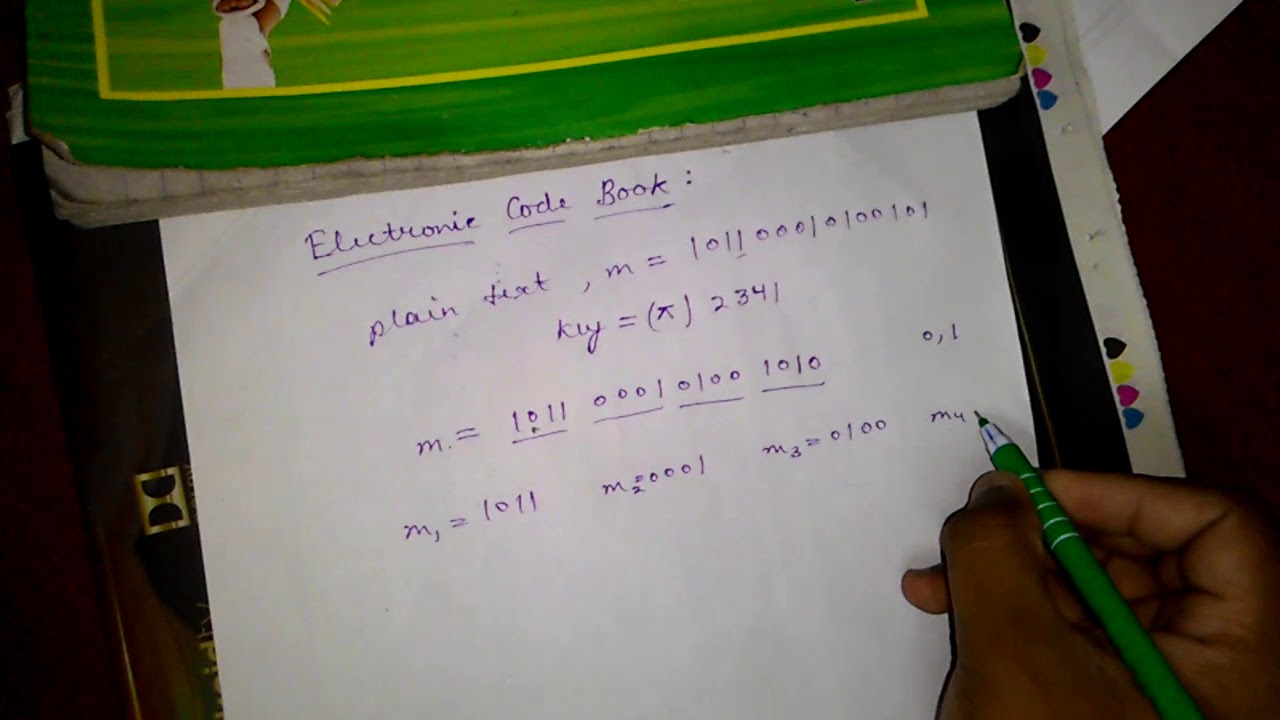 Electronic Code Book :
plain text , m = 101100010100101
key = (π) 2341
0,1
m = 1011 0001 0100 1010
m₁ = 1011 m₂=0001 m₃=0100 m₄